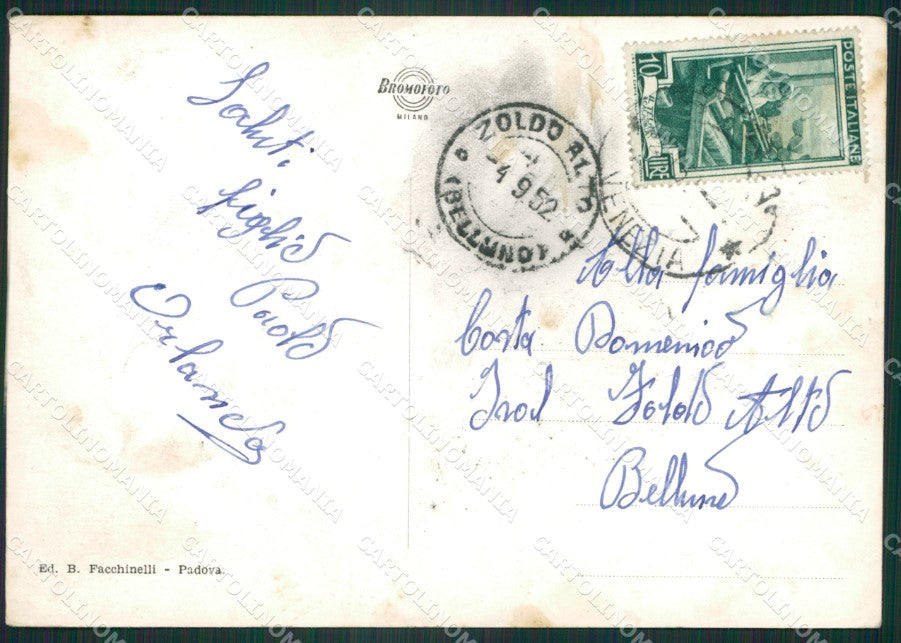 Saluti
figlio
Paolo
Orlando
BROMOFOTO
MILANO
ZOLDO ALTO
4 9 52
(BELLUNO)
POSTE ITALIANE
10
LIRE
VENEZIA
Alla famiglia
Costa Domenico
Zoldo Alto
Belluno
Ed. B. Facchinelli - Padova.
CARTOLINOMANIA